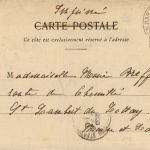 Imprimé
CARTE POSTALE
Ce côté est exclusivement réservé à l'adresse
Mademoiselle Marie
route de Chemillé
St Lambert du Lattay
Maine et